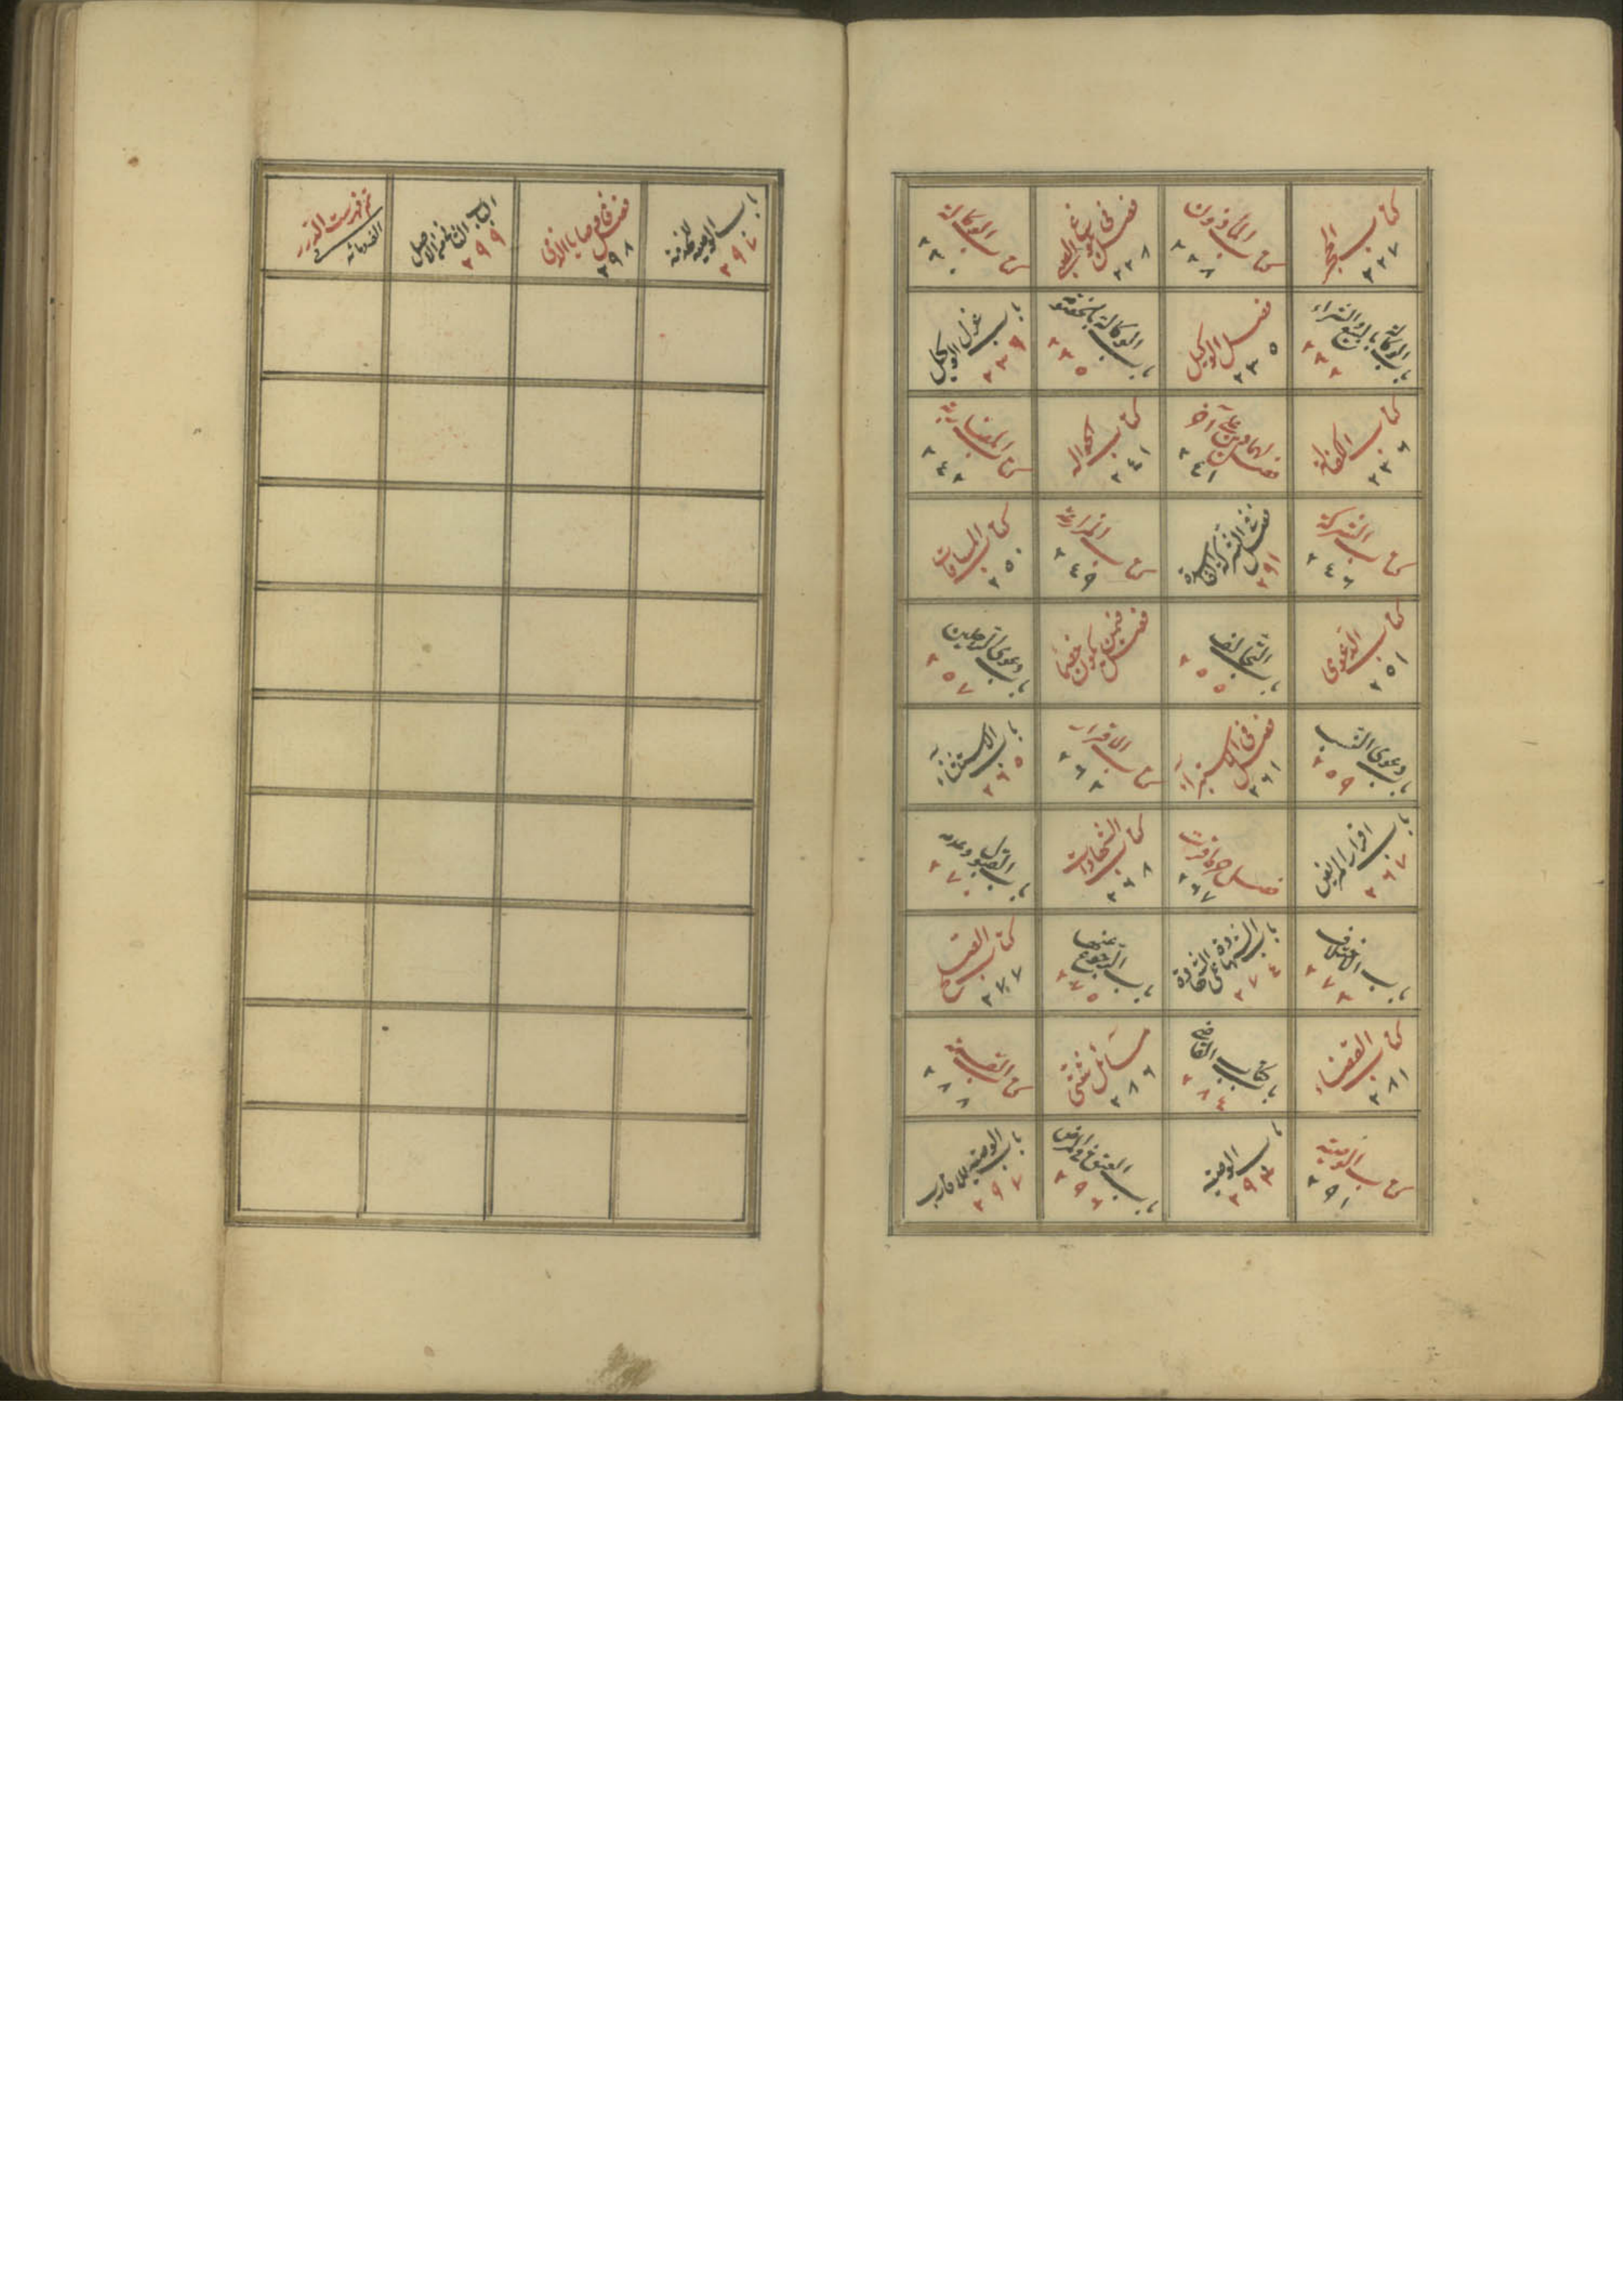 كتاب الحجر
٢٢٧
كتاب المأذون
٢٢٨
فصل في
٢٢٨
كتاب الوكالة
٢٣٠
باب الوكالة بالبيع والشراء
٢٣٢
فصل الوكيل
٢٣٥
باب الوكالة بالخصومة
٢٣٥
باب عزل الوكيل
٢٣٦
كتاب الكفالة
٢٣٦
فصل
٢٤١
كتاب الحواله
٢٤١
كتاب المضاربة
٢٤٢
كتاب الشركة
٢٤٦
فصل في الشركة الفاسدة
٢٩١
كتاب المزارعة
٢٤٩
كتاب المساقات
٢٥٠
كتاب الدعوى
٢٥١
باب التحالف
٢٥٥
فصل فيمن يكون خصماً
باب دعوى الرجلين
٢٥٧
باب دعوى النسب
٢٥٩
فصل في الاستبراء
٢٦١
كتاب الاقرار
٢٦٢
باب الاستثناء
٢٦٥
باب اقرار المريض
٢٦٧
فصل حرة اقرت
٢٦٧
كتاب الشهادات
٢٦٨
باب القبول وعدمه
٢٧٠
باب الاختلاف
٢٧٢
باب الشهادة على الشهادة
٢٧٤
باب الرجوع عنها
٢٧٥
كتاب الصلح
٢٧٧
كتاب القضاء
٢٨١
باب كتاب القاضي
٢٨٤
مسائل شتى
٢٨٦
كتاب القسمة
٢٨٨
كتاب الوصية
٢٩١
باب الوصية
٢٩٣
باب العتق في المرض
٢٩٦
باب الوصية للاقارب
٢٩٧
باب الوصية بالخدمة
فصل في وصايا الذمي
٢٩٨
٢٩٩
تم فهرست الدرر